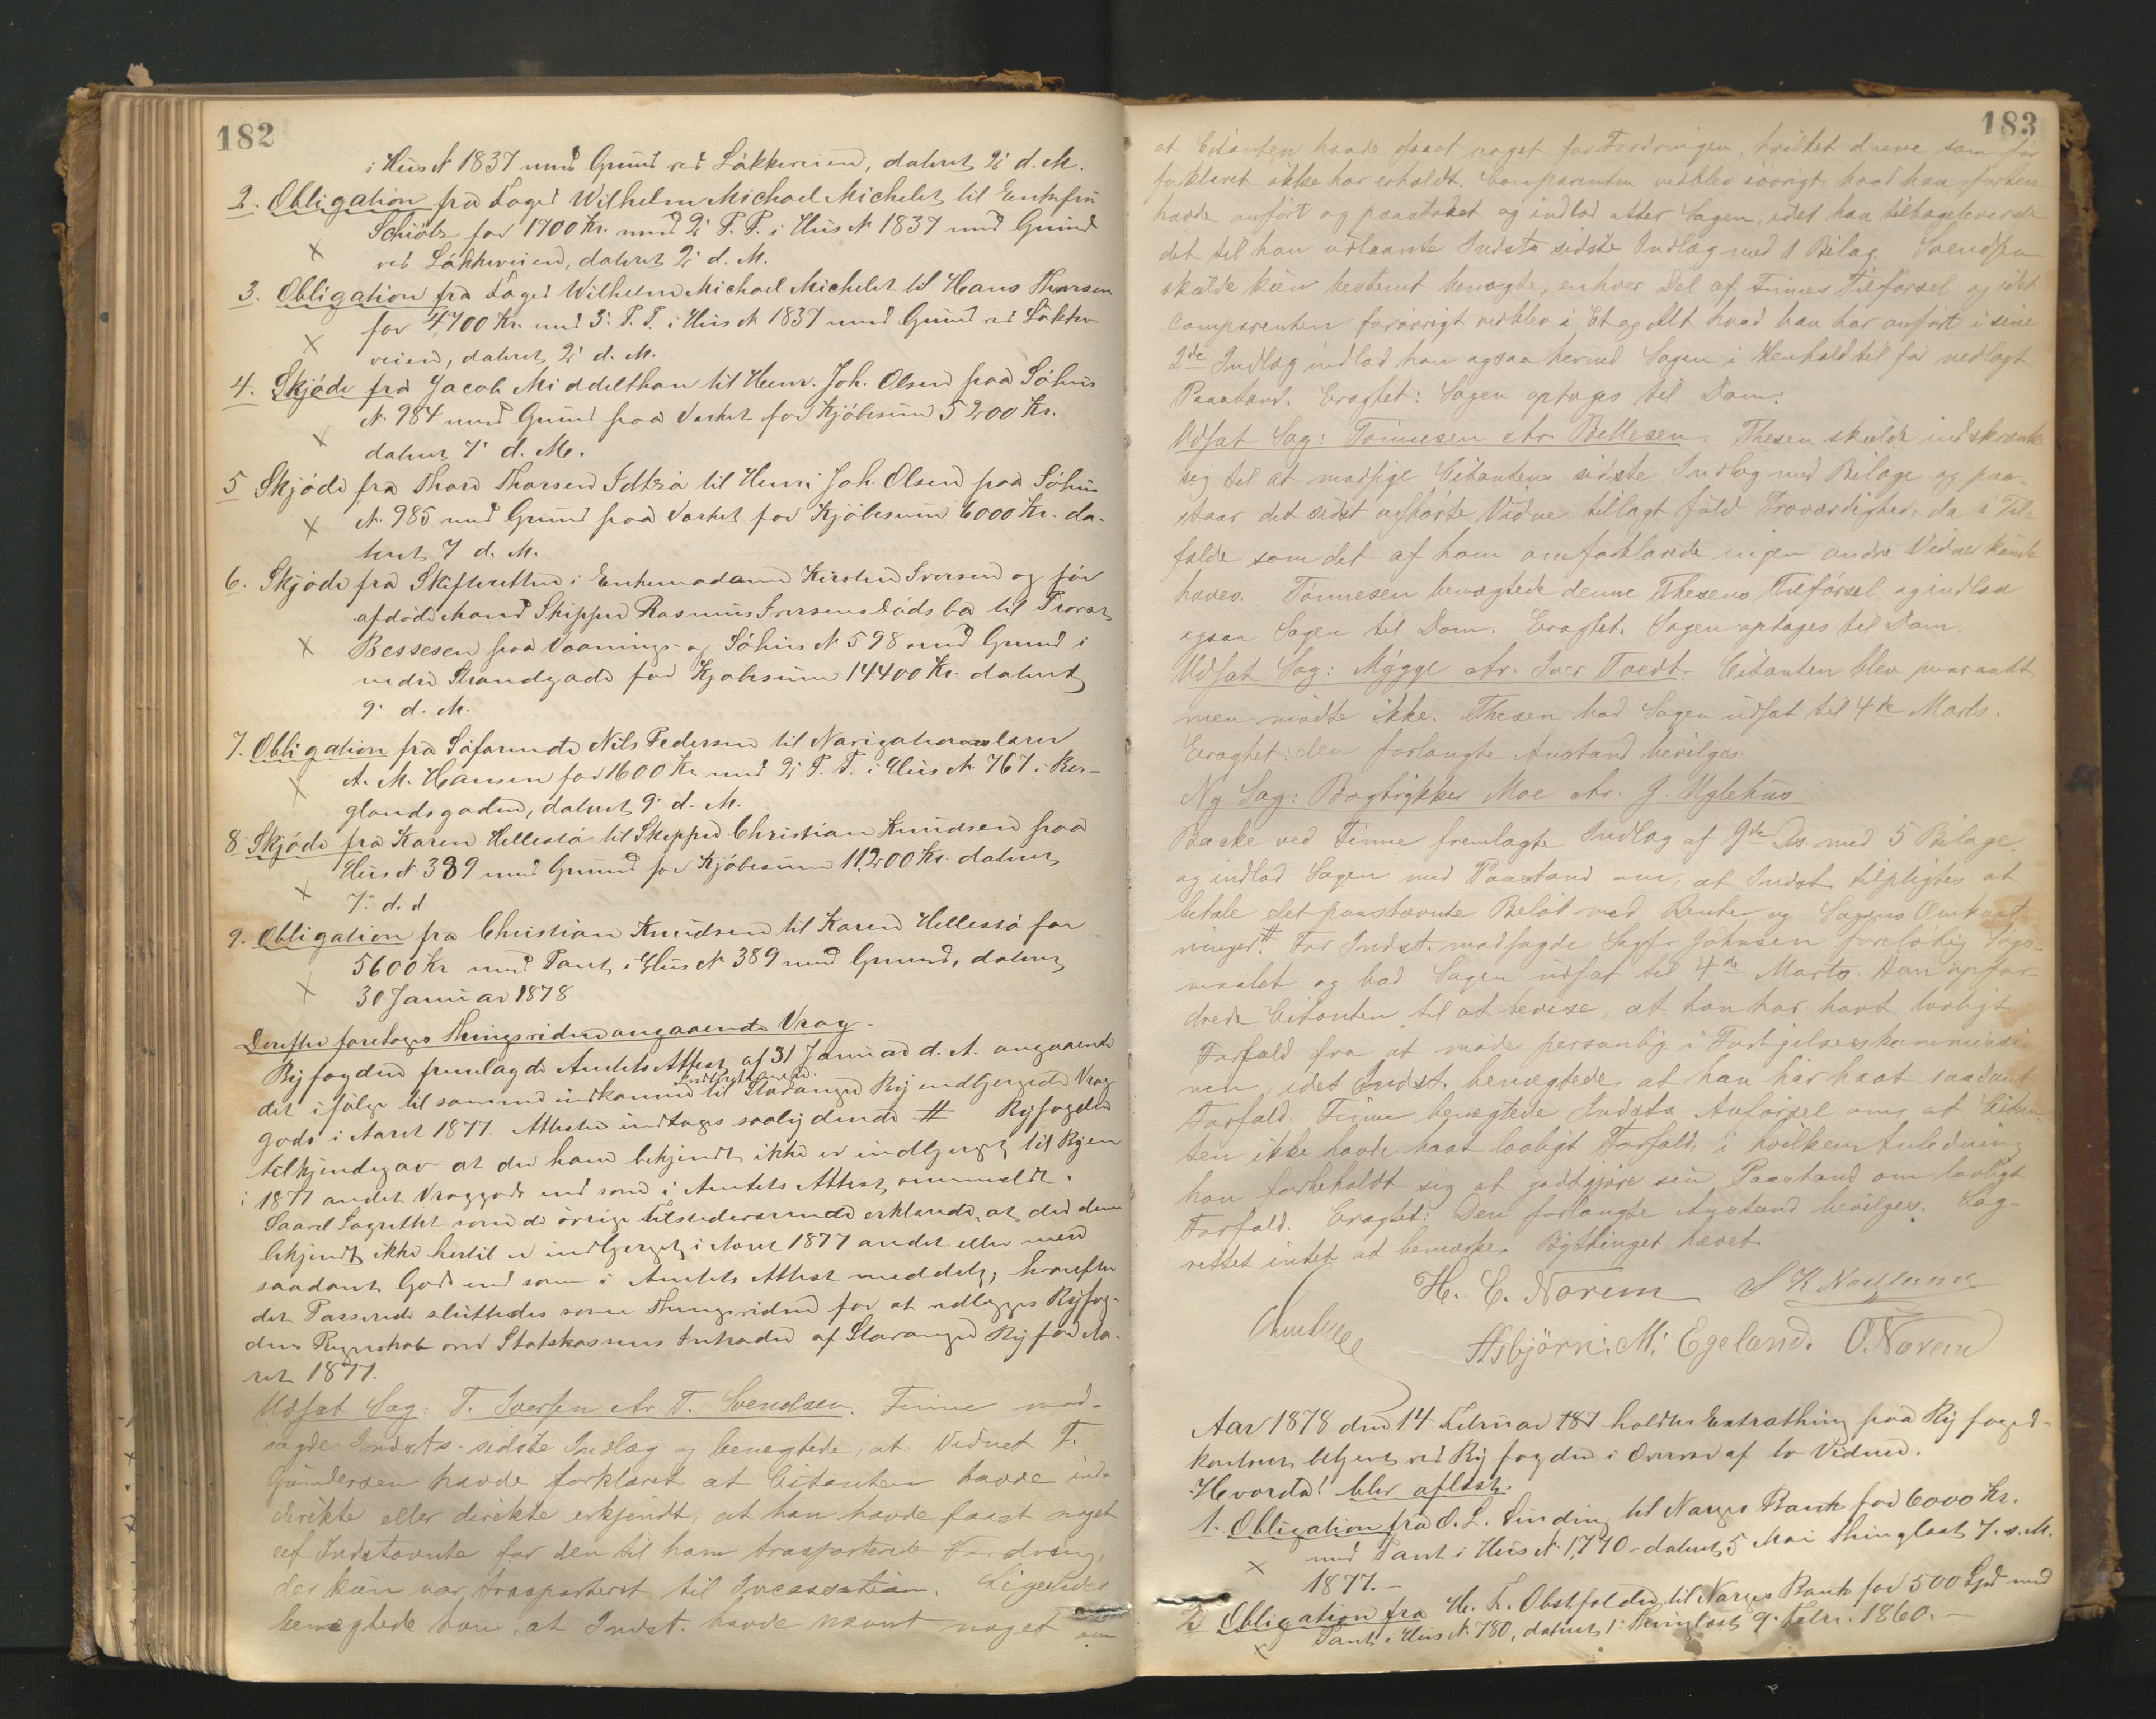 182
i Hus N 1837 med Grund ved Løkkeveien, datert 2 d. M.
2. Obligation fra Foged Wilhelm Michael Michelet til Enkefru
Schiötz for 1700 Kr. med 2 P. P. i Hus N 1837 med Grund
ved Løkkeveien, datert 2 d. M.
3. Obligation fra Foged Wilhelm Michael Michelet til Hans Thorsen
for 4,700 Kr. med 3. P. P. i Hus N 1837 med Grund ved Løkke
veien, datert 2 d. M.
4. Skjøde fra Jacob Middelthon til Henr. Joh. Olsen paa Søhus
N. 984 med Grund paa Verket for Kjøbesum 5200 Kr.
datert 7 d. M.
5 Skjøde fra Thore Thorsen til Henr. Joh. Olsen paa Søhus
N. 985 med Grund paa Verket for Kjøbesum 6000 Kr. da-
tert 7 d. M.
6. Skjøde fra Skifteretten i Enkemadame Kirsten Iversen og før
afdøde Mand Skipper Rasmus Iversens Dødsbo til Provst
Bessesen paa Vaanings- og Søhus N. 598 med Grund i
nedre Strandgade for Kjøbesum 14400 Kr. datert
9 d. M.
7. Obligation fra Søfarende Nils Pedersen til Navigationslærer
A. M. Hansen for 1600 Kr med 2 P. P. i Hus N. 767 i Ber-
glandsgaden, datert 9 d. M.
8 Skjøde fra Karen Hellestø til Skipper Christian Knudsen paa
Hus N. 389 med Grund for Kjøbesum 11,200 Kr. datert
7. d. d
9. Obligation fra Christian Knudsen til Karen Hellestø for
5600 Kr med Pant i Hus N 389 med Grund, datert
30 Januar 1878
Derefter foretoges Thingsvidne angaaende Vrag.
Byfogden fremlagde Amtets Attest af 31 Januar d. A. angaaende
det ifølge til samme indkomne til Stavanger By indbjergede Vrag
gods i Aaret 1877. Attesten indtages saalydende # Byfogden
tilkjendegav at der ham bekjendt ikke er indbjerget til Byen
i 1877 andet Vraggods end som i Amtets Attest ommeldt.
Saavel Lagrettet som de øvrige Tilstedeværende erklærede, at der dem
bekjendt ikke hertil er indbjerget i Aaret 1877 andet eller mere
saadant Gods end som i Amtets Attest meddelt, hvorefter
det Passerede sluttedes som Thingsvidne for at vedlægges Byfog-
dens Regnskab over Statskassens Intrader af Stavanger By for Aa-
ret 1877.
Udsat Sag: T. Iversen ctr T. Svendsen. Finne mod-
sagde Indsts. sidste Indlæg og benegtede, at Vidnet T.
Gundersen havde forklaret at Citanten havde in-
direkte eller direkte erkjendt, at han havde faaet noget
af Indstævnte for den til ham trasporterede Fordring,
der kun var trasporteret til Incassation. Ligeledes
benegtede han, at Indst. havde nævnt noget om
183
at Citanten havde faaet noget for Fordringen, hvilket denne som før
forklaret ikke har erholdt. Comparenten vedblev iøvrigt hvad han forhen
havde anført og paastaaet og indlod atter Sagen, idet han tilbageleverede
det til ham udlaante Indsts sidste Indlæg med 1 Bilag. Svendsen
skulde kun bestemt benegte, enhver Del af Finnes Tilførsel og idet
Comparenten forøvrigt vedblev i Et og Alt hvad han har anført i sine
2de Indlæg indlod han ogsaa hermed Sagen i Henhold til før nedlagt
Paastand. Eragtet: Sagen optages til Dom.
Udsat Sag: Tønnesen ctr. Bellesen. Thesen skulde indskrænke
sig til at modsige Citantens sidste Indlæg med Bilage og paa-
staar det sidst afhørte Vidne tillagt fuld Troværdighed, da i Til-
fælde som det af ham omforklarede ingen andre Vidner kunde
haves. Tønnesen benegtede denne Thesens Tilførsel og indlod
ogsaa Sagen til Dom. Eragtet. Sagen optages til Dom.
Udsat Sag: Mygge ctr. Iver Tvedt. Citanten blev paaraabt
men mødte ikke. Thesen bad Sagen udsat til 4de Marts.
Eragtet: den forlangte Anstand bevilges.
Ny Sag: Bogtrykker Moe ctr. J. Uglehus
Backe ved Finne fremlagte Indlæg af 9de Ds. med 5 Bilage
og indlod Sagen med Paastand om, at Indst. tilpligtes at
betale det paastævnte Beløb med Renter og Sagens Omkost
ninger. # For Indst. modsagde Sagf. Johnsen foreløbig Søgs-
maalet og bad Sagen udsat til 4de Marts. Han opfor-
drede Citanten til at bevise, at han har havt lovligt
Forfald fra at møde personlig i Forligelseskommissio
nen, idet Indst. benegtede, at han har havt saadant
Forfald. Finne benegtede Indsts Anførsel om, at Citan-
ten ikke havde havt lovligt Forfald, i hvilken Anledning
han forbeholdt sig at godtgjøre sin Paastand om lovligt
Forfald. Eragtet: Den forlangte Anstand bevilges. Lag-
rettet intet at bemærke. Bythinget hævet.
H. C. Norem
Asbjörn. M. Egeland. O. Norem
Aar 1878 den 14 Februar holdtes Extrathing paa Byfoged-
kontoret betjent ved Byfogden i Overvær af to Vidner.
Hvorda! blev aflæst:
1. Obligation fra O. L. Sinding til Norges Bank for 6000 Kr.
med Pant i Hus N. 1,770 - datert 5 Mai thinglæst 7. s. M.
1877. -
2) Obligation fra H. L. Obstfelder til Norges Bank for 500 Spd med
Pant i Hus N. 780, datert 1. thinglæst 9. Febr. 1860. -